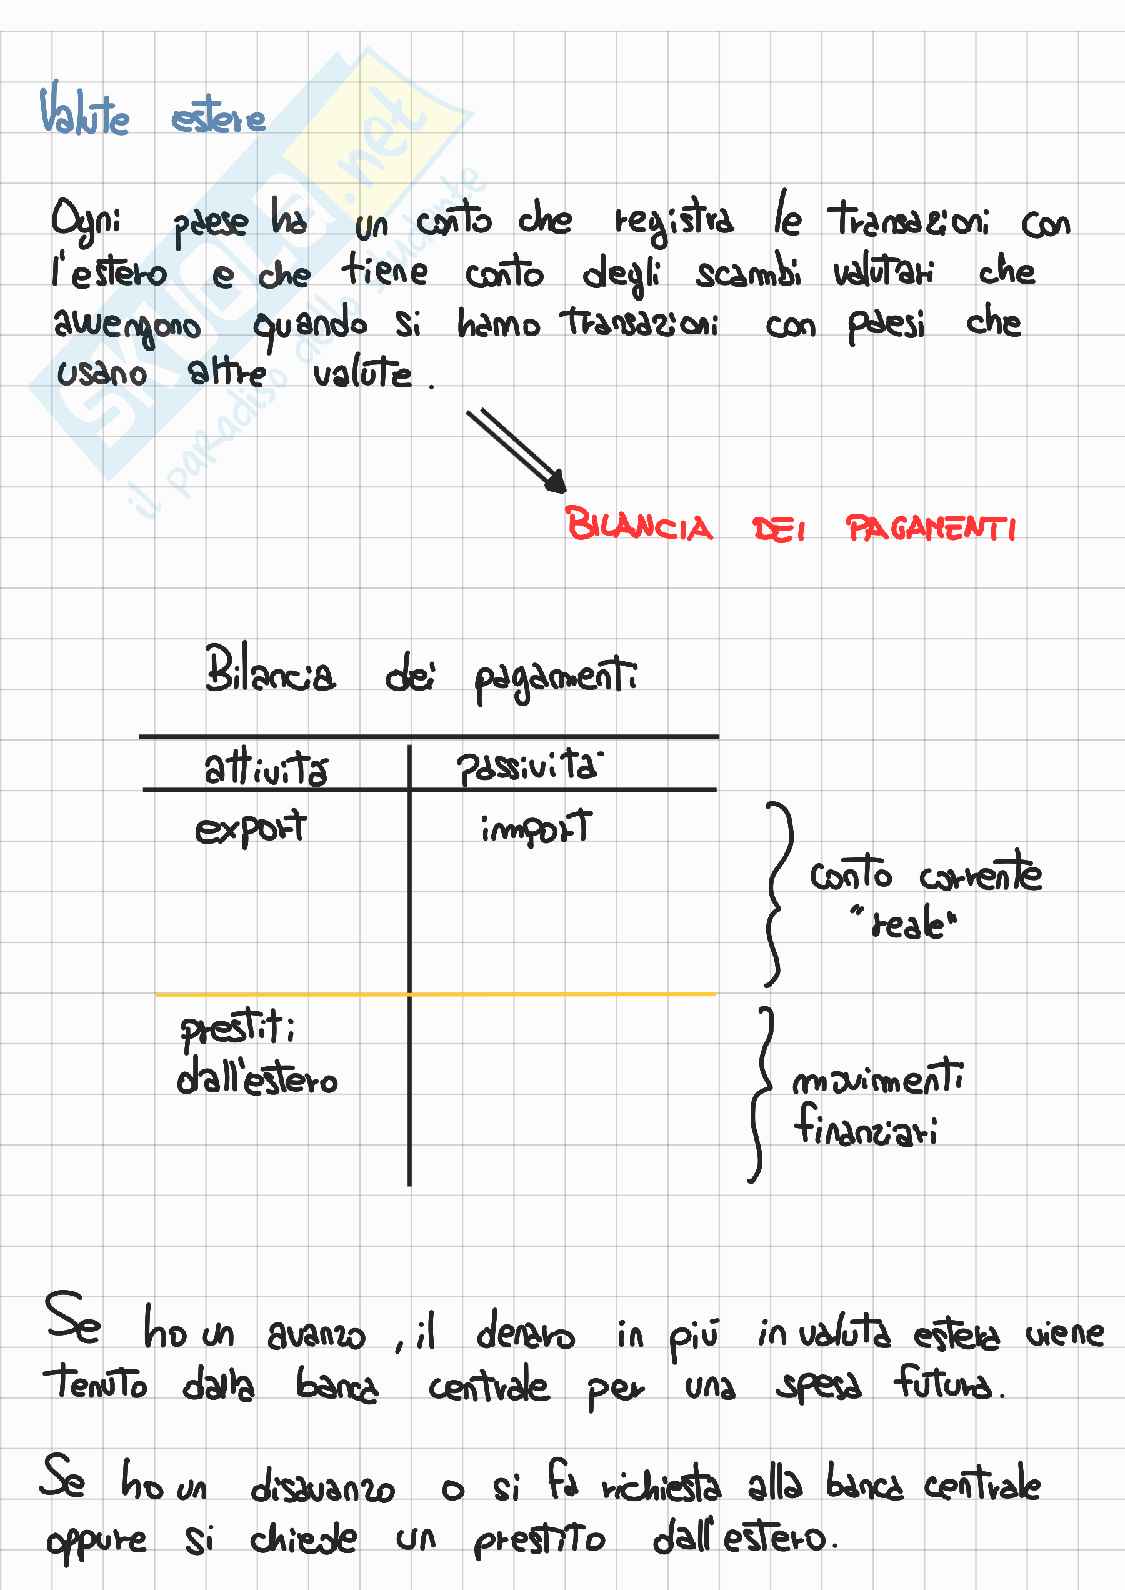 Valute estere
Ogni paese ha un conto che registra le transazioni con
l'estero e che tiene conto degli scambi valutari che
avvengono quando si hanno transazioni con paesi che
usano altre valute.
BILANCIA DEI PAGAMENTI
Bilancia dei pagamenti
attività passività
export import
conto corrente
"reale"
prestiti
dall'estero
movimenti
finanziari
Se ho un avanzo, il denaro in più in valuta estera viene
tenuto dalla banca centrale per una spesa futura.
Se ho un disavanzo o si fa richiesta alla banca centrale
oppure si chiede un prestito dall'estero.
SKUOLA.net
il paradiso dello studente